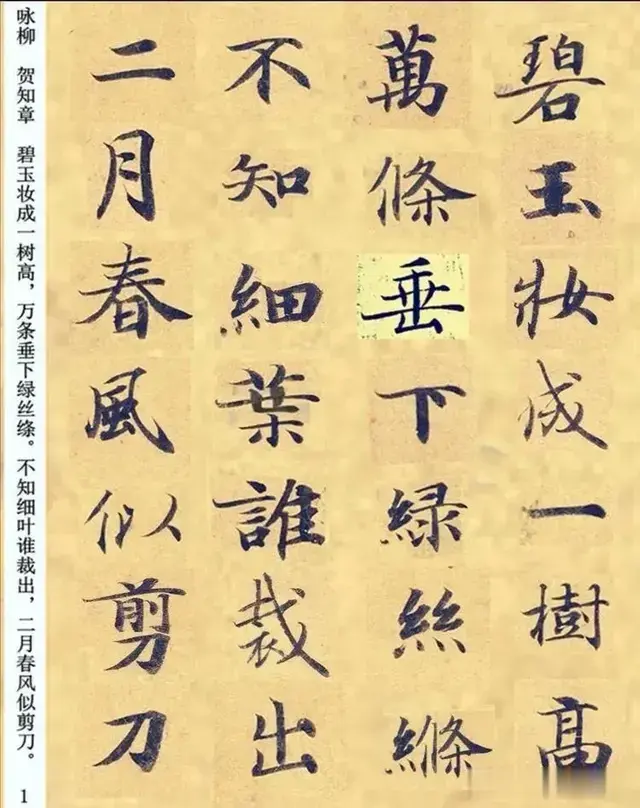 碧玉妝成一樹高
萬條垂下緑絲絛
不知細葉誰裁出
二月春風似剪刀
咏柳 贺知章 碧玉妆成一树高，万条垂下绿丝绦。不知细叶谁裁出，二月春风似剪刀。
1